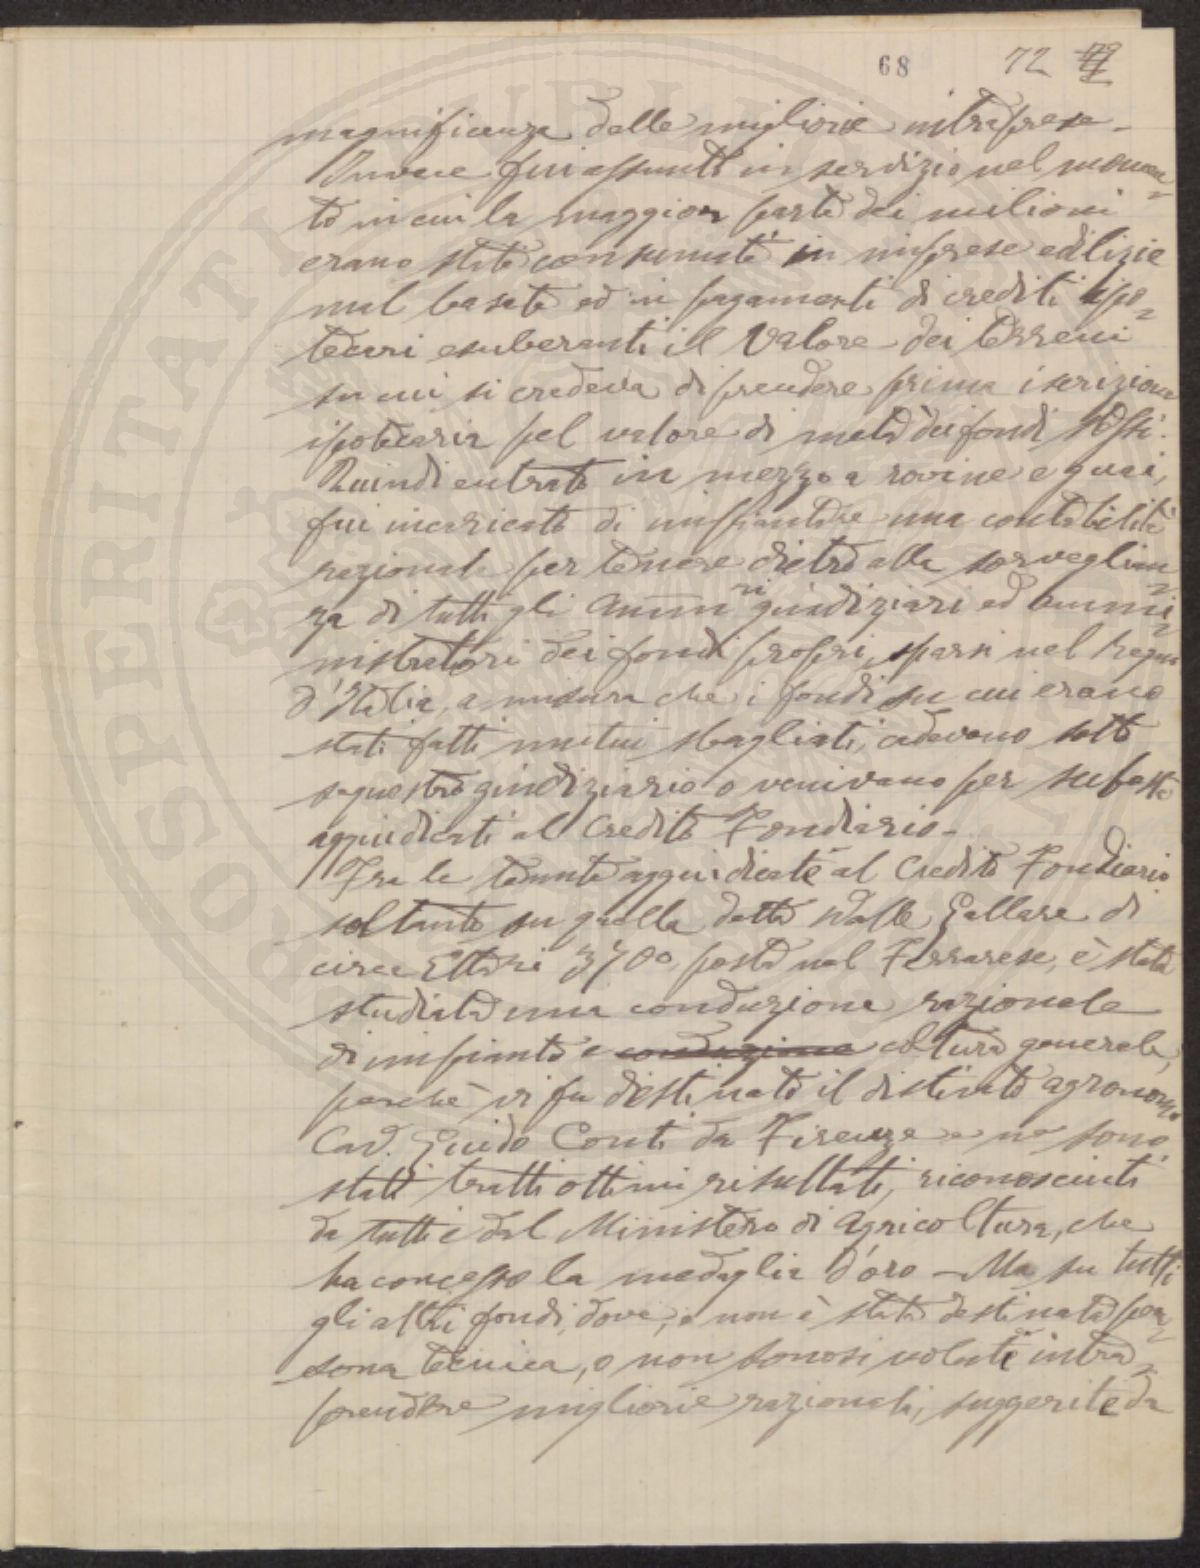 68 72
magnificenza delle migliorie intraprese –
Invece fui assunto in servizio nel momen-
to in cui la maggior parte dei milioni
erano stati consumati in imprese edilizie
mal basate ed in pagamenti di crediti ipo-
tecari esuberanti il valore dei terreni
su cui si credeva di prendere prima iscrizione
ipotecaria pel valore di metà dei fondi stessi.
Quindi entrato in mezzo a rovine e guai,
fui incaricato di impiantare una contabilità
razionale per tenere dietro alla sorveglian-
za di tutti gli Amm.ri giudiziari ed ammi-
nistratori dei fondi propri, sparsi nel Regno
d'Italia, a misura che i fondi su cui erano
stati fatti mutui sbagliati, cadevano sotto
sequestro giudiziario o venivano per subaste
aggiudicati al Credito Fondiario –
Fra le tenute aggiudicate al Credito Fondiario
soltanto su quella detta Valle Gallare di
circa Ettari 3700 posta nel Ferrarese, è stata
studiata una conduzione razionale
di impianto e conduzione coltura generale,
perchè vi fu destinato il distinto agronomo
Cav. Guido Conti da Firenze e ne sono
stati tratti ottimi risultati, riconosciuti
da tutti e dal Ministero di Agricoltura, che
ha concesso la medaglia d'oro – Ma su tutti
gli altri fondi, dove, o non è stata destinata per-
sona tecnica, o non sonosi volute intra-
prendere migliorie razionali, suggerite da
SPERITATI PUBLICAE